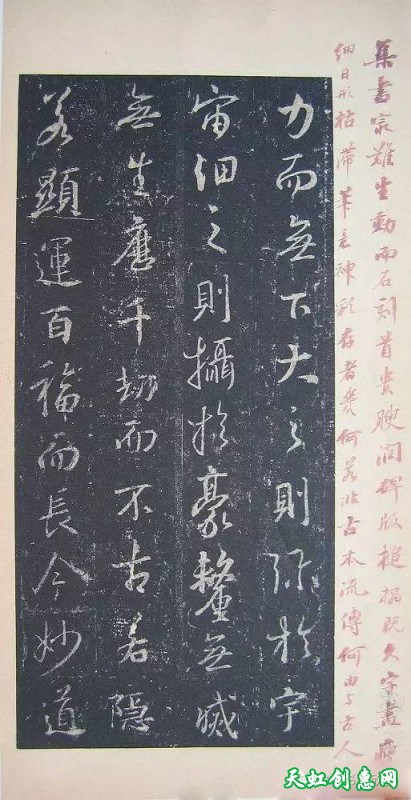 集書最難生動而石刻首貴腴潤碑版槌搨既久字畫
細日形枯滯筆意神彩存者幾何若非古本流傳何由与古人
力而無下大之則弥於宇
宙細之則攝於豪釐無滅
無生歷千劫而不古若隱
若顯運百福而長今妙道
天虹创惠网